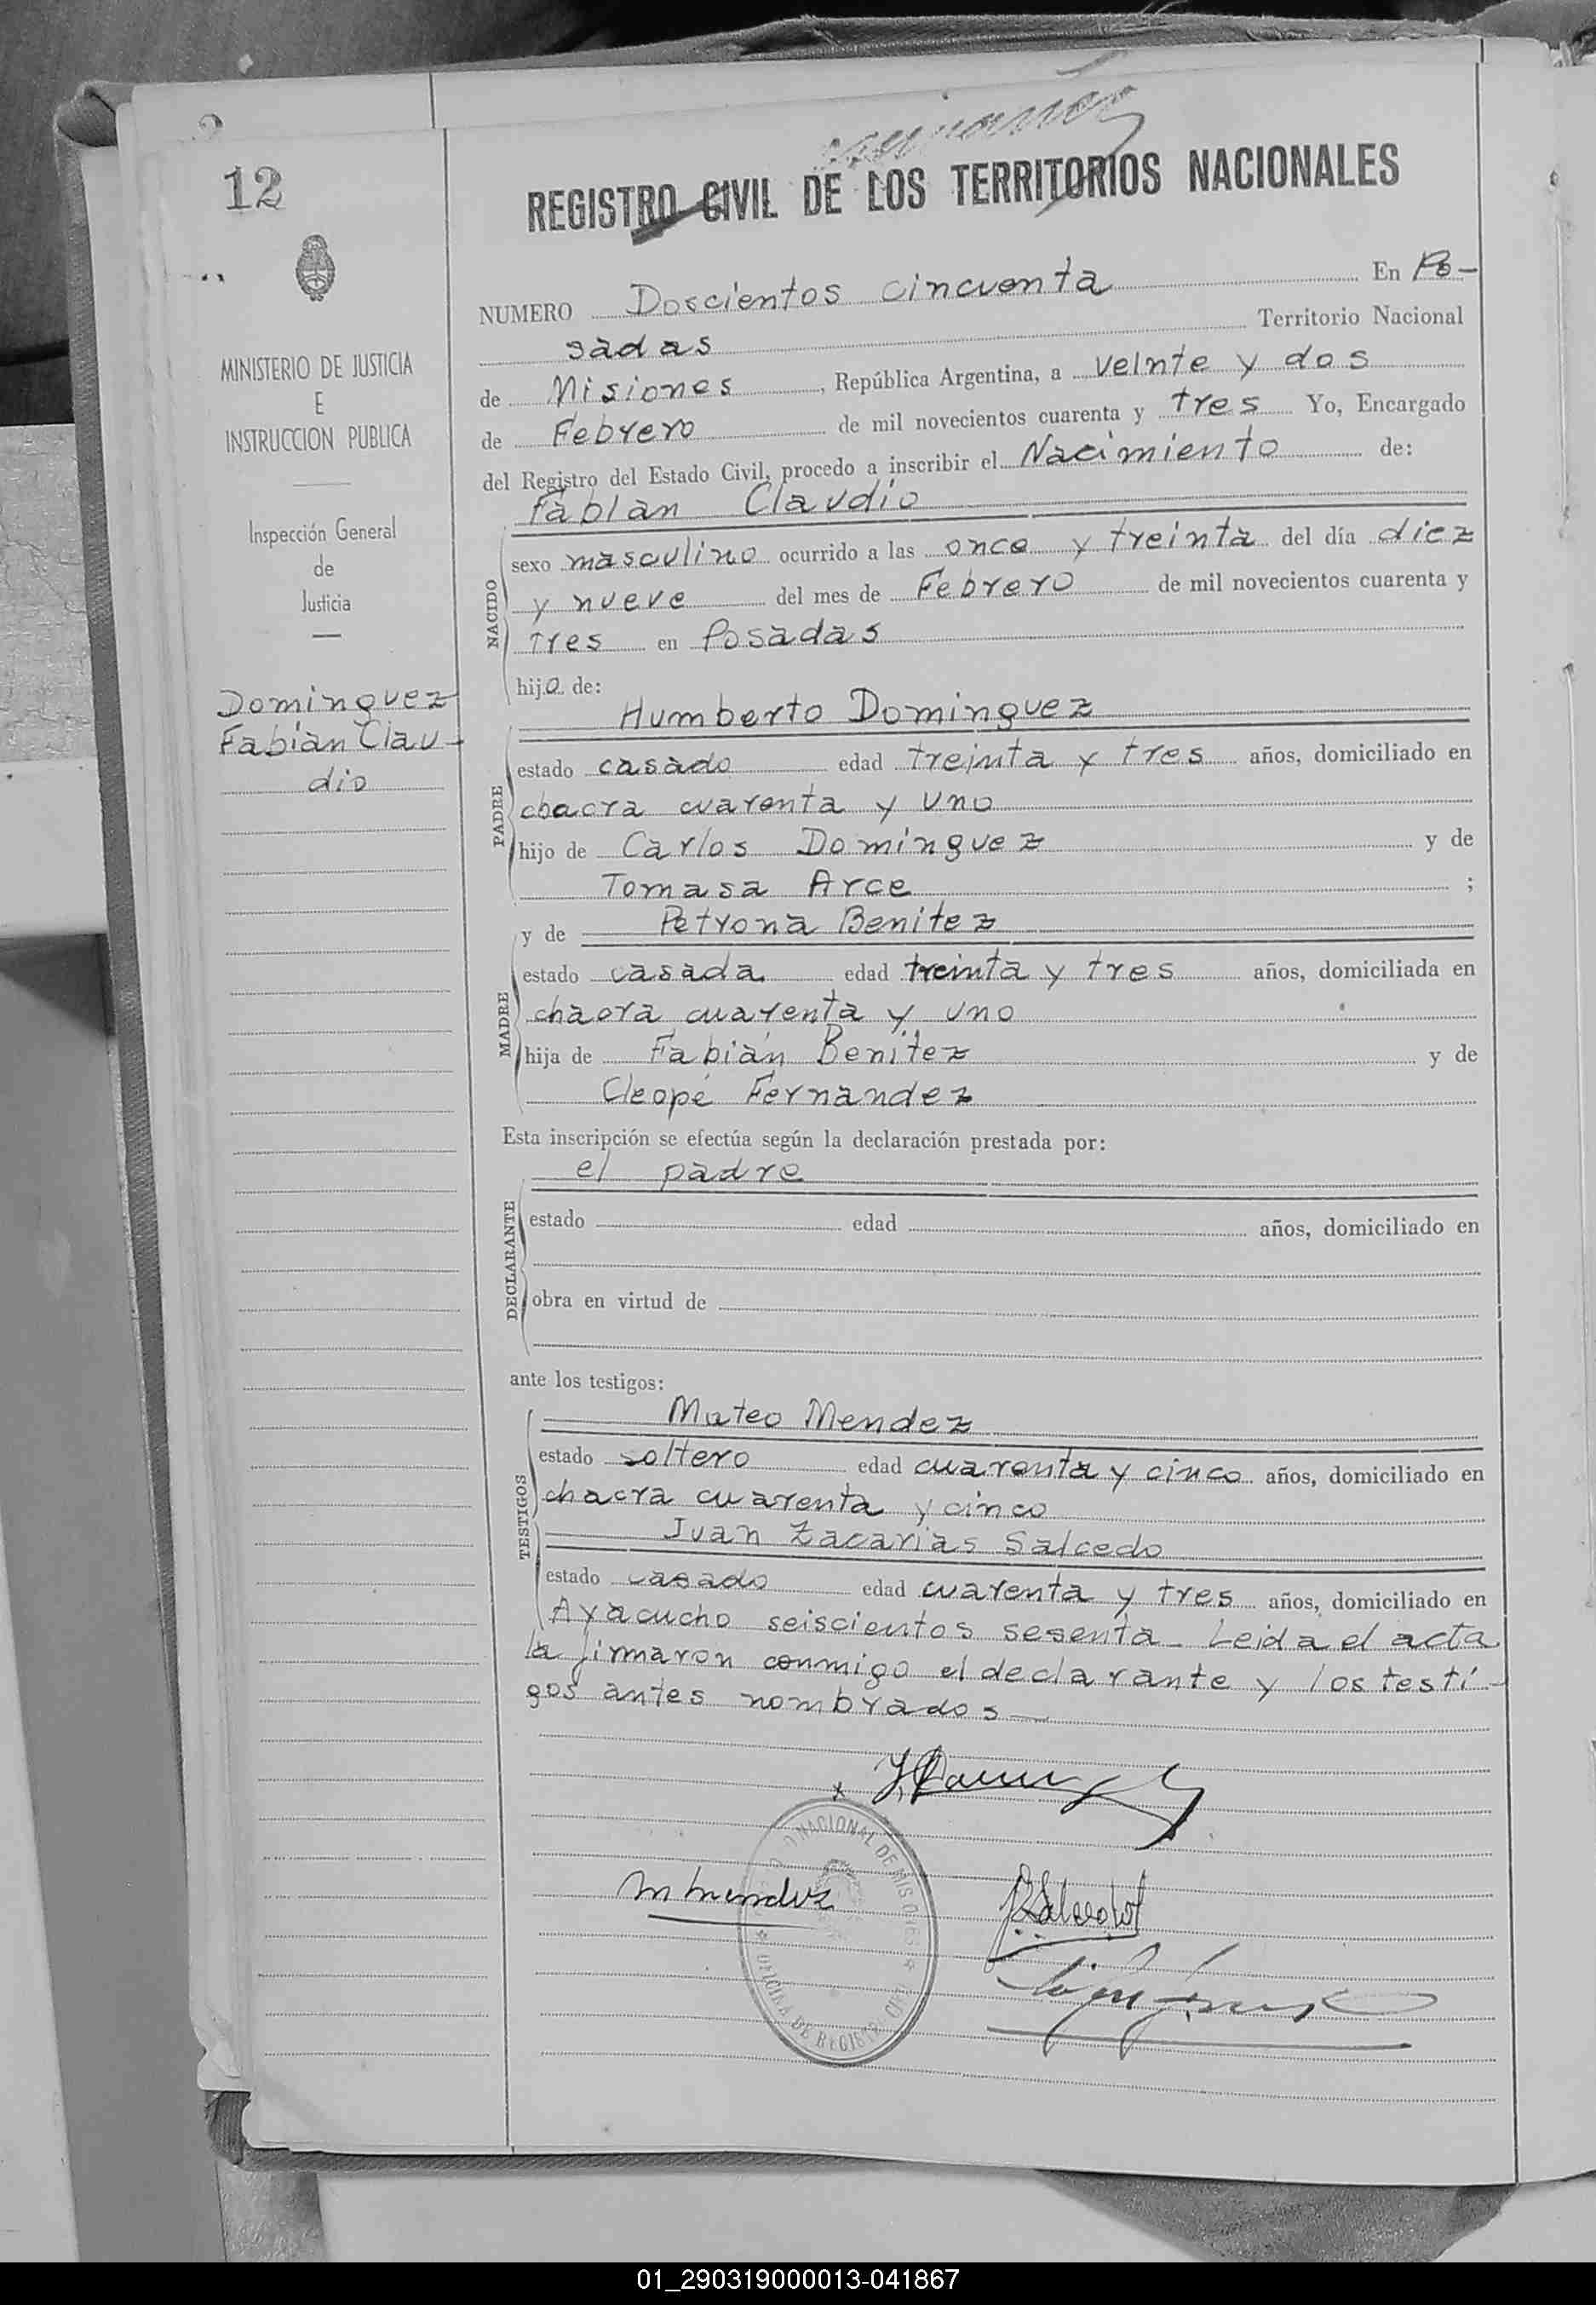 12
REGISTRO CIVIL DE LOS TERRITORIOS NACIONALES
MINISTERIO DE JUSTICIA
E
INSTRUCCION PUBLICA
Inspección General
de
Justicia
Dominguez
Fabián Clau-
dio
NUMERO Doscientos cincuenta En Po-
sadas Territorio Nacional
de Misiones, República Argentina, a veinte y dos
de Febrero de mil novecientos cuarenta y tres Yo, Encargado
del Registro del Estado Civil, procedo a inscribir el Nacimiento de:
Fabián Claudio
NACIDO
sexo masculino ocurrido a las once y treinta del día diez
y nueve del mes de Febrero de mil novecientos cuarenta y
tres en Posadas
hijo de:
Humberto Dominguez
PADRE
estado casado edad treinta y tres años, domiciliado en
chacra cuarenta y uno
hijo de Carlos Dominguez y de
Tomasa Arce ;
y de Petrona Benitez
MADRE
estado casada edad treinta y tres años, domiciliada en
chacra cuarenta y uno
hija de Fabián Benitez y de
Cleopé Fernandez
Esta inscripción se efectúa según la declaración prestada por:
el padre
DECLARANTE
estado edad años, domiciliado en
obra en virtud de
ante los testigos:
Mateo Mendez
TESTIGOS
estado soltero edad cuarenta y cinco años, domiciliado en
chacra cuarenta y cinco
Juan Zacarias Salcedo
estado casado edad cuarenta y tres años, domiciliado en
Ayacucho seiscientos sesenta - Leida el acta
la firmaron conmigo el declarante y los testi-
gos antes nombrados
M Mendez
NACIONAL DE MISIONES
OFICINA DE REGISTRO CIVIL
01_290319000013-041867